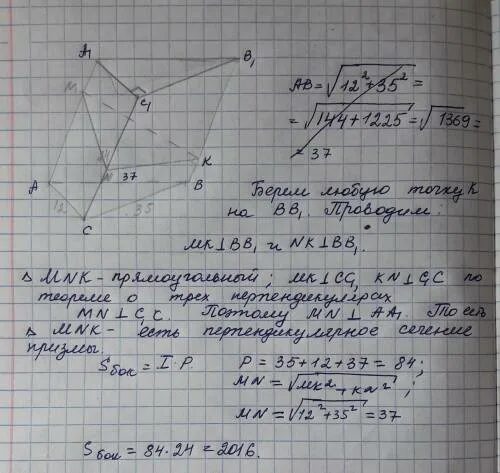 A₁
B₁
M
C₁
N
37
K
A
B
12
35
C
AB = √12² + 35² =
= √144 + 1225 = √1369 =
= 37
Берем любую точку K
на BB₁. Проводим:
MK⊥BB₁ и NK⊥BB₁.
△ MNK - прямоугольный; MK⊥CC₁, KN⊥C₁C по
теореме о трех перпендикулярах
MN⊥C₁C. Поэтому MN⊥AA₁. То есть
△ MNK - есть перпендикулярное сечение
призмы.
Sбок = I · P. P = 35 + 12 + 37 = 84;
MN = √MK² + KN² ;
MN = √12² + 35² = 37
Sбок = 84 · 24 = 2016.